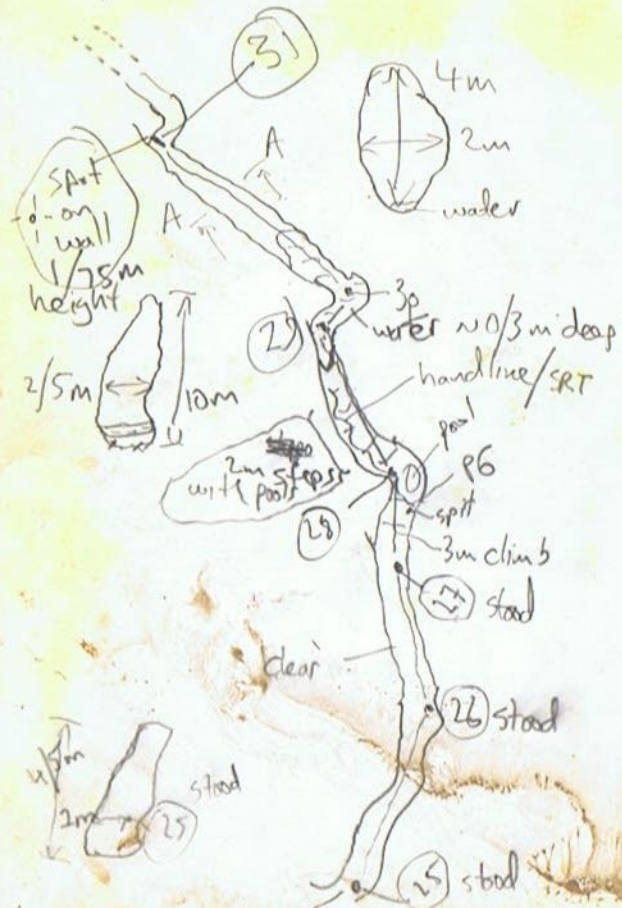 31
4m
2m
water
A
A
spit
on
wall
1/75m
height
3p
water ~0/3m deep
29
handline/SRT
2/5m
10m
pool
2m steps
with pools
p6
spit
28
3m climb
27
stood
clear
26
stood
2m
25
stood
25
stood